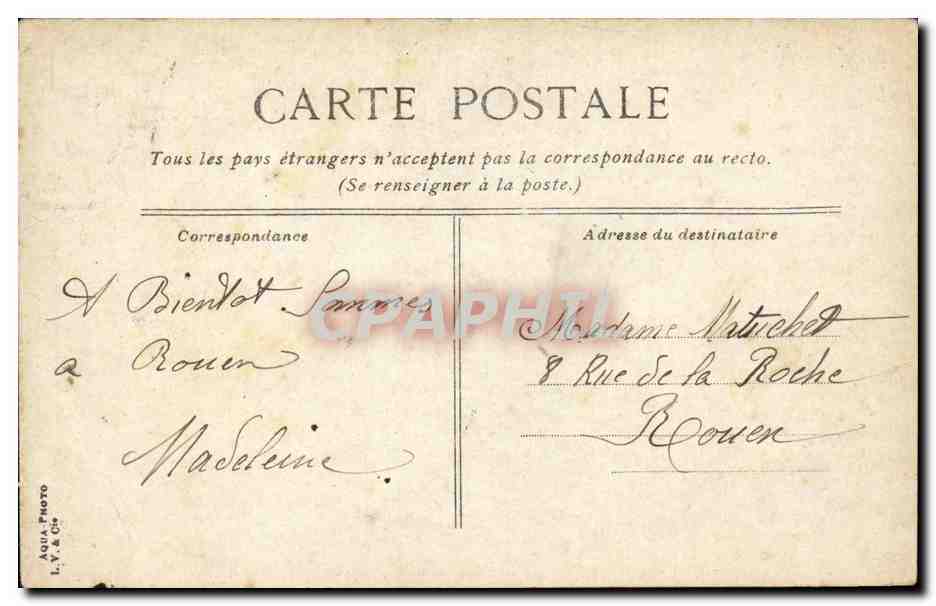 CARTE POSTALE
Tous les pays étrangers n'acceptent pas la correspondance au recto.
(Se renseigner à la poste.)
Correspondance
A Bientot Sommes
a Rouen
Madeleine
Adresse du destinataire
Madame Matuchet
8 Rue de la Roche
Rouen
AQUA-PHOTO
L. V. & Cie
CPAPHIL